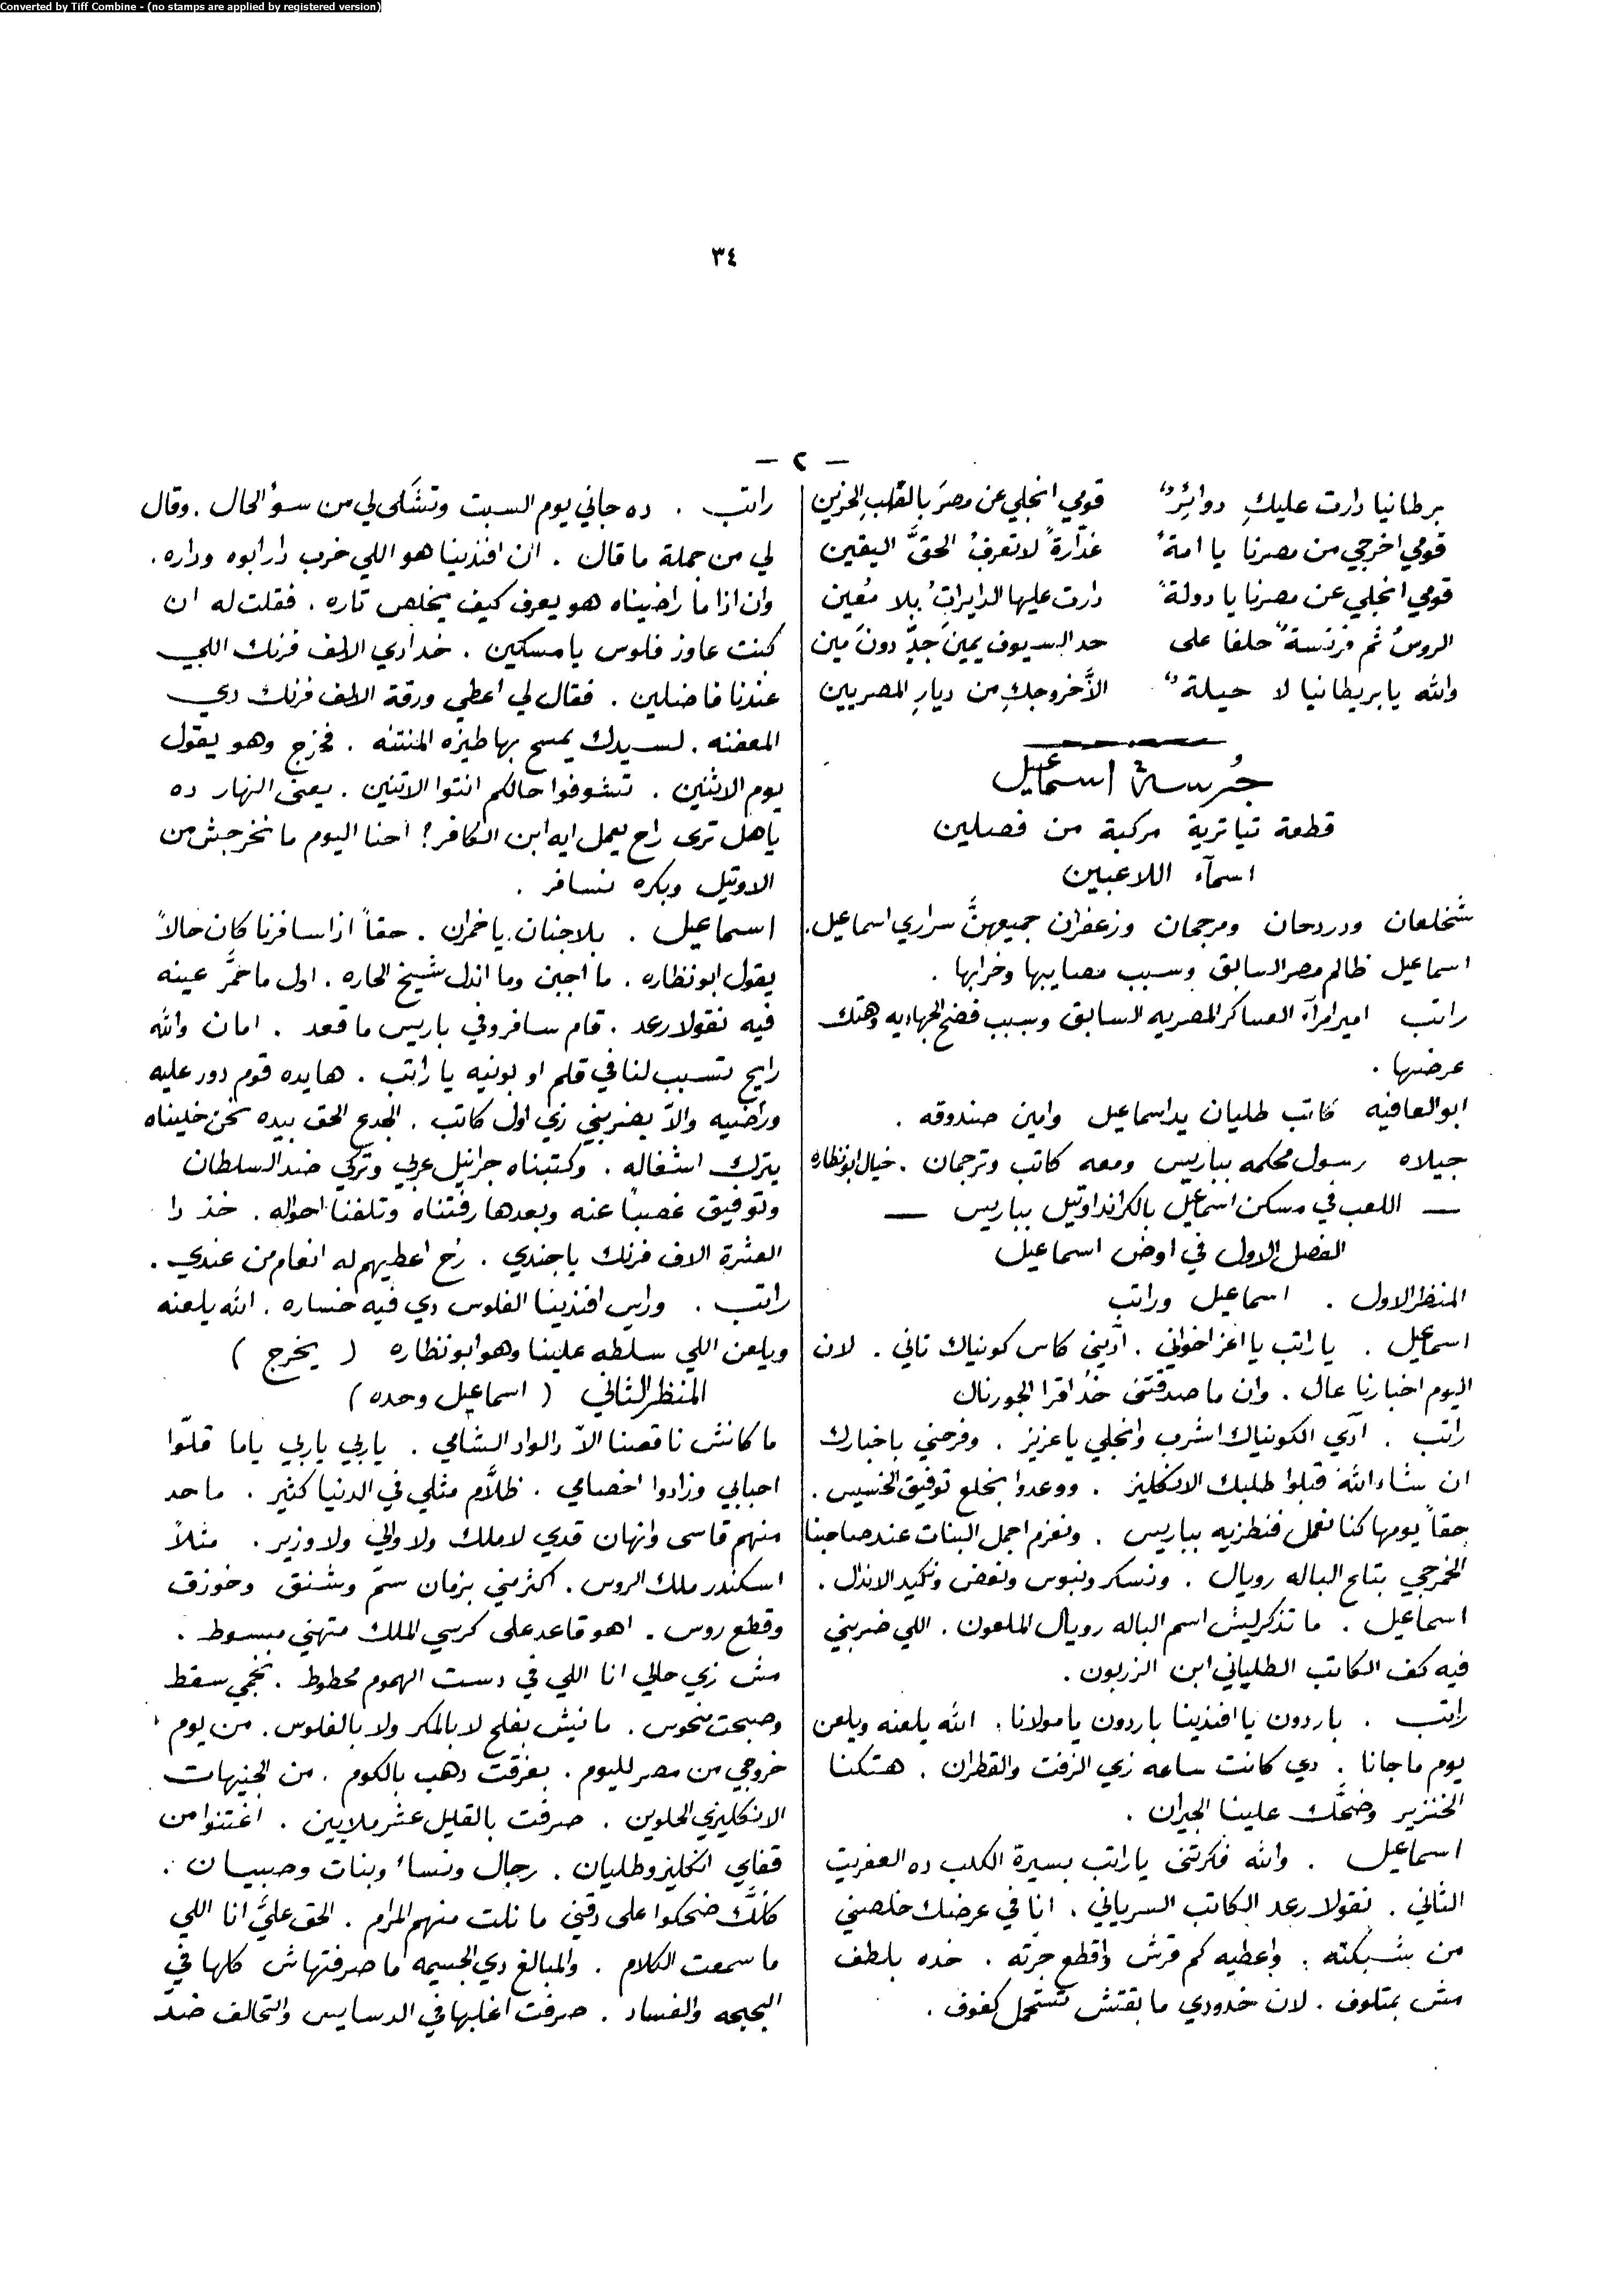 Converted by Tiff Combine - (no stamps are applied by registered version)
٣٤
— ٢ —
برطانيا دارت عليكِ دوائرٌ قومي انجلي عن مصرَ بالقلبِ الحزين
قومي اخرجي من مصرنا يا امةً غدّارةً لا تعرفُ الحقَّ اليقين
قومي انجلي عن مصرنا يا دولةً دارت عليها الدايراتُ بلا مُعين
الروسُ ثم فرنسةٌ حلفا على حد السيوف يمينَ جدٍّ دونَ مين
والله يا بريطانيا لا حيلةٌ الاَّ خروجكِ من ديارِ المصريين
جُرسة اسماعيل
قطعة تياترية مركبة من فصلين
اسمآء اللاعبين
شخلعان ودردحان ومرجان وزعفران جميعهنَّ سراري اسماعيل.
اسماعيل ظالم مصر السابق وسبب مصايبها وخرابها .
راتب امير امرآء العساكر المصريه السابق وسبب فضح الجهاديه وهتك
عرضها .
ابو العافيه كاتب طليان يد اسماعيل وامين صندوقه .
جيلاه رسول محكمه بباريس ومعه كاتب وترجمان . خيال ابو نظاره
— اللعب في مسكن اسماعيل بالكراند اوتيل بباريس —
الفصل الاول في اوض اسماعيل
المنظر الاول . اسماعيل وراتب
اسماعيل . يا راتب يا اعز اخواني . ادّيني كاس كونياك تاني . لان
اليوم اخبارنا عال . وان ما صدقتنى خُد اقرا الجورنال
راتب . آدي الكونياك اشرب وانجلي يا عزيز . وفرحني باخبارك
ان شاء الله قبلوا طلبك الانكليز . ووعدوا بخلع توفيق الخسيس .
حقاً يومها كنا نعمل فنطزيه بباريس . ونعزم اجمل البنات عند صاحبنا
الخمرجي بتاع الباله رويال . ونسكر ونبوس ونعض ونكيد الاندال .
اسماعيل . ما تذكرليش اسم الباله رويال الملعون . اللي ضربني
فيه كف الكاتب الطلياني ابن الزربون .
راتب . باردون يا افندينا باردون يا مولانا . الله يلعنه ويلعن
يوم ما جانا . دي كانت ساعه زي الزفت والقطران . هتكنا
الخنزير وضحَّك علينا الجيران .
اسماعيل . والله فكرتنى يا راتب بسيرة الكلب ده العفريت
الثاني . نقولا رعد الكاتب السرياني . انا في عرضك خلصني
من شبكته . واعطيه كم قرش واقطع جرّته . خده بلطف
مش بمتلوف . لان خدودي ما بقتش تستحمل كفوف .
راتب . ده جاني يوم السبت وتشكَّى لي من سوءُ الحال . وقال
لي من جملة ما قال . ان افندينا هو اللي خرب دار ابوه وداره .
وان اذا ما راضيناه هو يعرف كيف يخلص تاره . فقلت له ان
كنت عاوز فلوس يا مسكين . خد ادي الالف فرنك اللي
عندنا فاضلين . فقال لي اعطي ورقة الالف فرنك دي
المعفنه . لسيدك يمسح بها طيزه المنتنه . فخرج وهو يقول
يوم الاثنين . تشوفوا حالكم انتوا الاتنين . يعنى النهار ده
يا هل ترى راح يعمل ايه ابن الكافر ! احنا اليوم ما نخرجش من
الاوتيل وبكره نسافر .
اسماعيل . بلا جنان يا خمران . حقاً اذا سافرنا كان حالاً
يقول ابو نظاره . ما اجبن وما اندل شيخ الحاره . اول ما حمَّر عينه
فيه نقولا رعد . قام سافر وفي باريس ما قعد . امان والله
رايح تسبب لنا في قلم او بونيه يا راتب . هايده قوم دور عليه
وراضيه والاّ يضربني زي اول كاتب . الجدع الحق بيده نحن خليناه
يترك اشغاله . وكتبناه جرانيل عربي وتركي ضد السلطان
وتوفيق غصباً عنه وبعدها رفتناه وتلفنا احواله . خذ دا
العشرة الاف فرنك يا جندي . رح اعطيهم له انعام من عندي .
راتب . وراس افندينا الفلوس دي فيه خساره . الله يلعنه
ويلعن اللي سلطه علينا وهو ابو نظاره ( يخرج )
المنظر الثاني ( اسماعيل وحده )
ما كانش ناقصنا الاّ دالواد الشامي . يا ربي يا ربي ياما قلّوا
احبابي وزادوا اخصامي . ظلاَّم مثلي في الدنيا كثير . ما حد
منهم قاسى وانهان قدي لا ملك ولا والي ولا وزير . مثلاً
اسكندر ملك الروس . اكثر مني بزمان سمّ وشنق وخوزق
وقطع روس . اهو قاعد على كرسي الملك متهني مبسوط .
مش زي حالي انا اللي في دست الهموم محطوط . نجمي سقط
وصبحت منحوس . مانيش بفلح لا بالمكر ولا بالفلوس . من يوم
خروجي من مصر لليوم . بعزقت دهب بالكوم . من الجنيهات
الانكليزي الحلوين . صرفت بالقليل عشر ملايين . اغتنوا من
قفاي انكليز وطليان . رجال ونساء وبنات وصبيان .
كلَّك ضحكوا على دقني ما نلت منهم المرام . الحق عليَّ انا اللي
ما سمعت الكلام . والمبالغ دي الجسيمه ما صرفتهاش كلها في
البحبحه والفساد . صرفت اغلبها في الدسايس والتحالف ضد